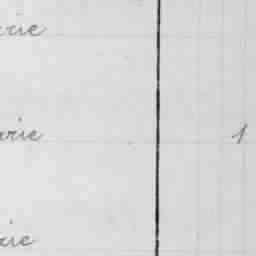 rie
arie 1
rie